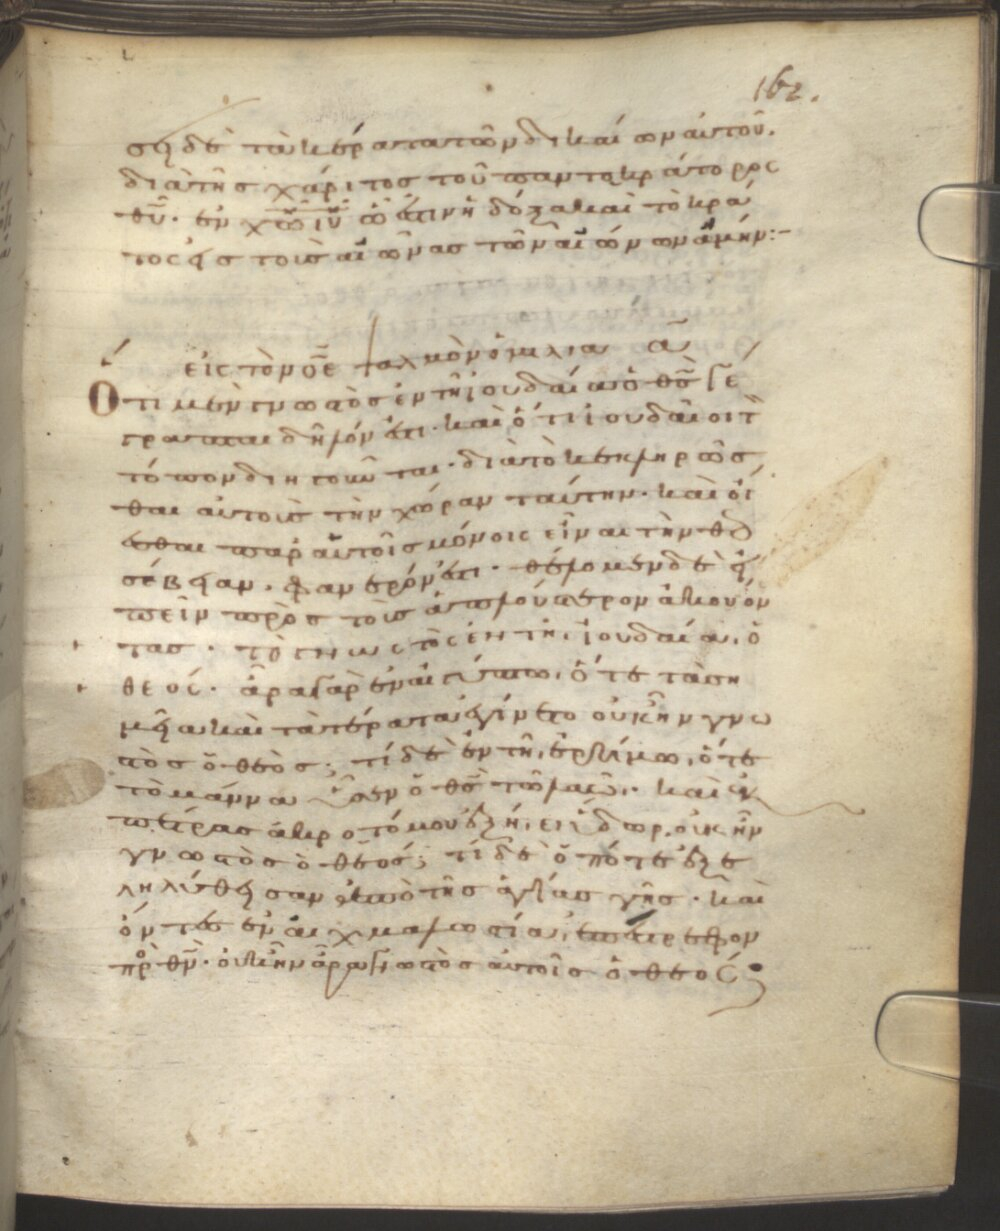 162.
σει δὲ τὰ κέρατα τῶν δικαίων αὐτοῦ.
διὰ τῆς χάριτος τοῦ παντοκράτορος
θῦ. ἐν χῶ ἰῦ ὧ ἐστιν ἡ δόξα καὶ τὸ κρά
τος εἰς τοὺς αἰῶνας τῶν αἰώνων ἀμήν:-
εἰς τὸν οε ψαλμὸν ὁμιλία α
Ὅτι μὲν γνωστὸς ἐν τῆ ἰουδαία ὁ θς γέ
γραπται δῆλόν ἐστι. καὶ ὅτι ἰουδαῖοι τὸν
τόπον διηγοῦνται. διὰ τὸ κεκληρῶσ
θαι αὐτοὺς τὴν χώραν ταύτην. καὶ οἴ
εσθαι παρ αὐτοῖς μόνοις εἶναι τὴν θεο
σέβειαν. φανερόν ἐστι. θέλομεν δὲ εἰ
πεῖν πρὸς τοὺς ἁπλούστερον ἀκούον
τας. τὸ γνωστὸς ἐν τῆ ἰουδαία ὁ
θεός. ἆρα γὰρ ἐν αἰγύπτω, ὅτε τὰ ση
μεῖα καὶ τὰ τέρατα ἐγίνετο οὐκ ἦν γνω
στὸς ὁ θεὸς; τί δὲ ἐν τῆ ἐρήμω, ὅτε
τὸ μάννα ὗσεν ὁ θς τῶ λαῶ. καὶ ἐκ
πέτρας ἀκροτόμου ἐξήει ὕδωρ, οὐκ ἦν
γνωστὸς ὁ θεός; τί δὲ ὁπότε ἐξε
ληλύθεισαν ἀπὸ τῆς ἁγίας γῆς. καὶ
ὄντες ἐν αἰχμαλωσία, ἐπέστρεφον
πρ θν. οὐκ ἦν ἄρα γνωστὸς αὐτοῖς ὁ θεός;